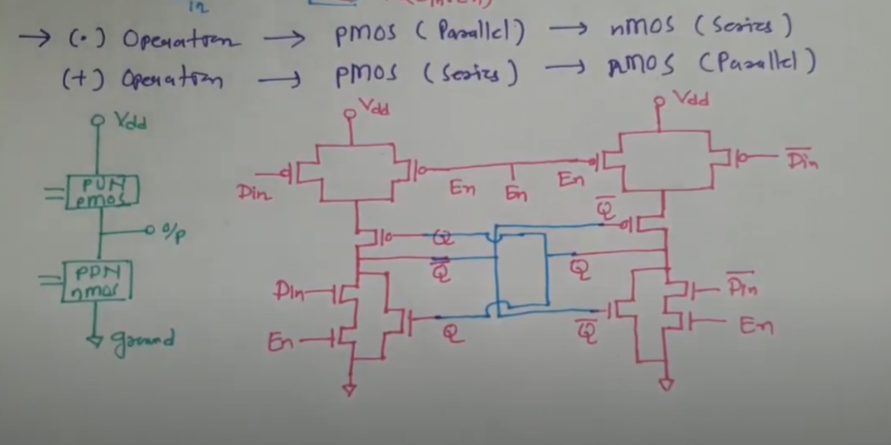 → (·) Operation → pMOS (Parallel) → nMOS (Series)
(+) Operation → pMOS (Series) → nMOS (Parallel)
Vdd
PUN
pmos
o/p
PDN
nmos
ground
Vdd
Vdd
Din
En
En
En
D̅i̅n̅
Q
Q̅
Q̅
Q
Din
En
Q
Q̅
D̅i̅n̅
En